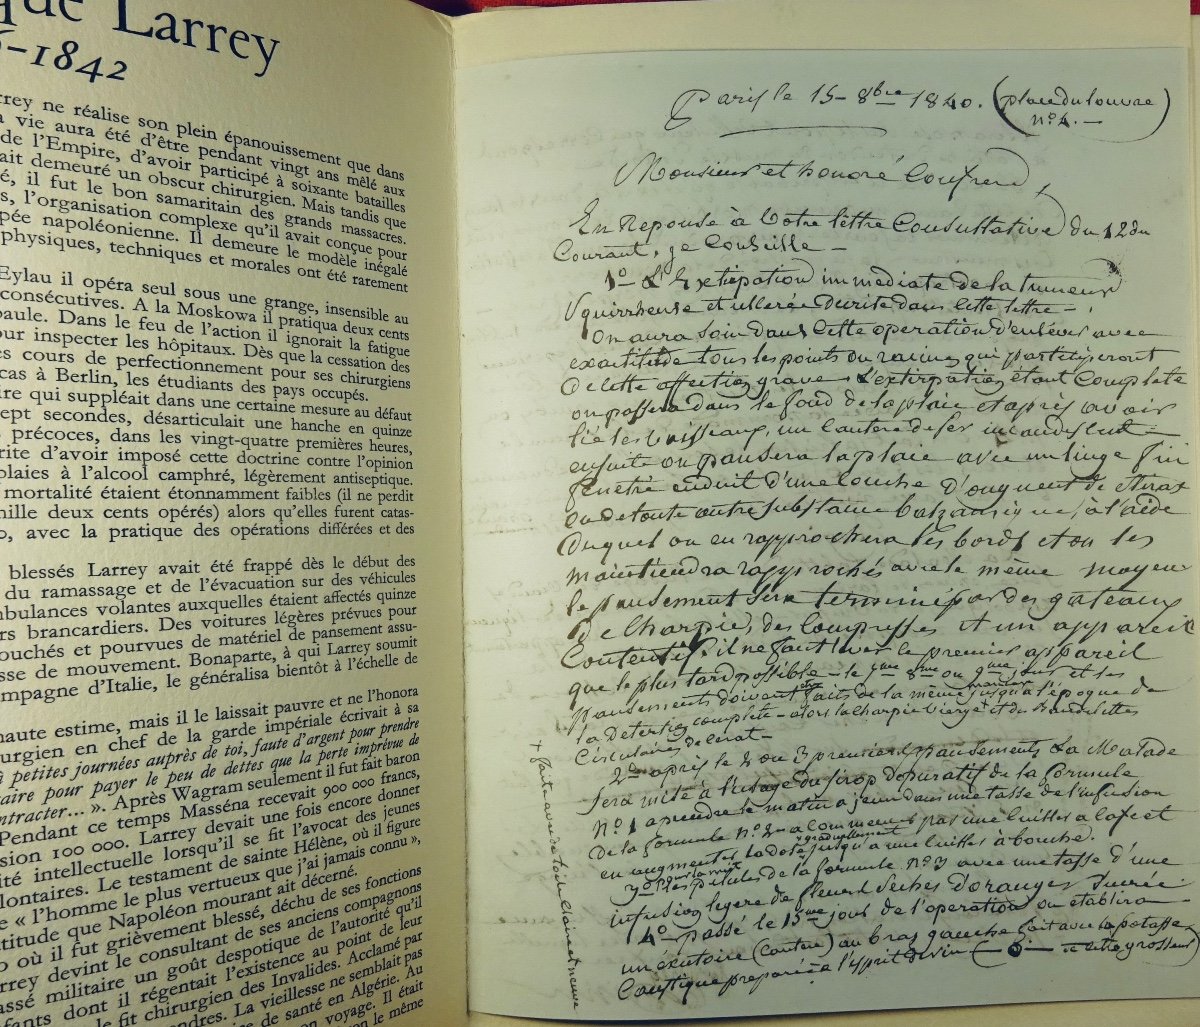 que Larrey
6-1842
rrey ne réalise son plein épanouissement que dans
a vie aura été d'être pendant vingt ans mêlé aux
de l'Empire, d'avoir participé à soixante batailles
ait demeuré un obscur chirurgien. Mais tandis que
é, il fut le bon samaritain des grands massacres.
s, l'organisation complexe qu'il avait conçue pour
pée napoléonienne. Il demeure le modèle inégalé
physiques, techniques et morales ont été rarement
Eylau il opéra seul sous une grange, insensible au
consécutives. A la Moskowa il pratiqua deux cents
paule. Dans le feu de l'action il ignorait la fatigue
our inspecter les hôpitaux. Dès que la cessation des
es cours de perfectionnement pour ses chirurgiens
cas à Berlin, les étudiants des pays occupés.
ire qui suppléait dans une certaine mesure au défaut
ept secondes, désarticulait une hanche en quinze
s précoces, dans les vingt-quatre premières heures,
rite d'avoir imposé cette doctrine contre l'opinion
plaies à l'alcool camphré, légèrement antiseptique.
mortalité étaient étonnamment faibles (il ne perdit
mille deux cents opérés) alors qu'elles furent catas-
o, avec la pratique des opérations différées et des
blessés Larrey avait été frappé dès le début des
du ramassage et de l'évacuation sur des véhicules
mbulances volantes auxquelles étaient affectés quinze
rs brancardiers. Des voitures légères prévues pour
ouchés et pourvues de matériel de pansement assu-
sse de mouvement. Bonaparte, à qui Larrey soumit
mpagne d'Italie, le généralisa bientôt à l'échelle de
haute estime, mais il le laissait pauvre et ne l'honora
urgien en chef de la garde impériale écrivait à sa
à petites journées auprès de toi, faute d'argent pour prendre
aire pour payer le peu de dettes que la perte imprévue de
ntracter... ». Après Wagram seulement il fut fait baron
Pendant ce temps Masséna recevait 900 000 francs,
sion 100 000. Larrey devait une fois encore donner
ité intellectuelle lorsqu'il se fit l'avocat des jeunes
lontaires. Le testament de sainte Hélène, où il figure
e « l'homme le plus vertueux que j'ai jamais connu »,
titude que Napoléon mourant ait décerné.
o où il fut grièvement blessé, déchu de ses fonctions
rrey devint le consultant de ses anciens compagnons
assé militaire un goût despotique de l'autorité qu'il
nfants dont il régentait l'existence au point de leur
le fit chirurgien des Invalides. Acclamé par
ndres. La vieillesse ne semblait pas
de santé en Algérie. Au
on voyage. Il était
le même
Paris le 15 - 8bre 1840. (place du louvre
n° 4. -
Monsieur et honoré Confrere,
En Reponse à Votre lettre Consultative du 12 du
Courant, je Conseille -
1° L'Extirpation immediate de la tumeur
Squirrheuse et ulcerée decrite dans cette lettre -
on aura soin dans cette operation d'enlever avec
exactitude tous les points ou racines qui participeront
de cette affection grave. L'extirpation étant Complete
on passera dans le fond de la plaie et après avoir
lié les vaisseaux, un cautere de fer incandescent -
ensuite on pansera la plaie avec un linge fin
fenêtré enduit d'une couche d'onguent de Stirax
ou de toute autre substance balzamique, à l'aide
duquel on en rapprochera les bords et on les
maintiendra rapprochés avec le même moyen
le pansement sera terminé par des gateaux
de charpie, des Compresses et un appareil
Contentif, il ne faut lever le premier appareil
que le plus tard possible - le 7me 8me ou 9me jour, et les
pansements doivent être faits de la même manière jusqu'à l'époque de
la detersion complete - alors la charpie vierge + et des bandelettes
Circulaires de cerat -
2° après le 2 ou 3 premiers pansements La Malade
sera mise à l'usage du sirop depuratif de la formule
n° 1 a prendre le matin a jeun dans une tasse de l'infusion
de la formule n° 2 - a commencer par une cuillere a café et
en augmenter la dose graduellement jusqu'a une cuillere à bouche.
3° les pilules de la formule n° 3 avec une tasse d'une
infusion legere de fleurs seches d'oranger sucrée
4° passé le 15me jour de l'operation on établira
un exutoire (cautere) au bras gauche fait avec la potasse
Caustique preparée a l'Esprit de vin (- o - cette grosseur)
+ faite avec de toile claire et neuve